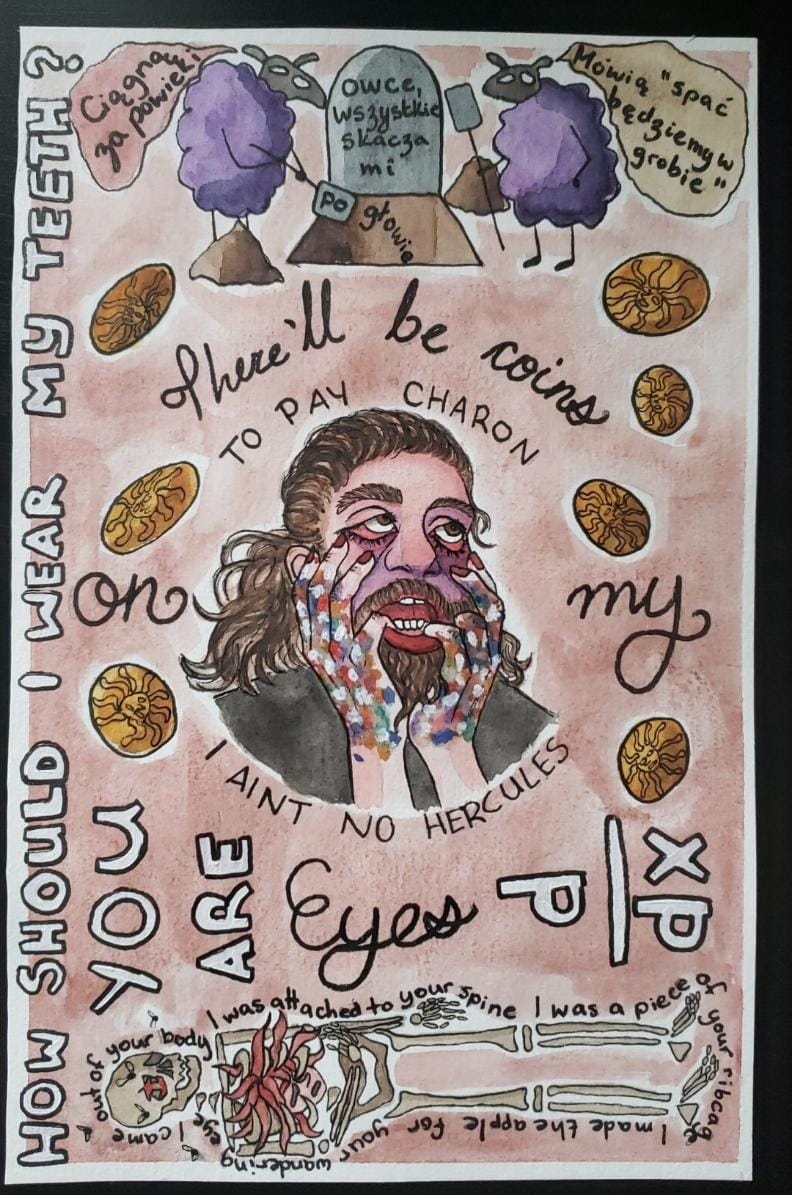 HOW SHOULD I WEAR MY TEETH?
Ciągną
za powieki
Owce,
wszystkie
skaczą
mi
po
głowie
Mówią "spać
będziemy w
grobie"
There'll be coins
TO PAY CHARON
on
my
I AINT NO HERCULES
Eyes
YOU
ARE
d
dx
I came out of your body
I was attached to your spine
I was a piece of your ribcage
I made the apple for your wandering eye